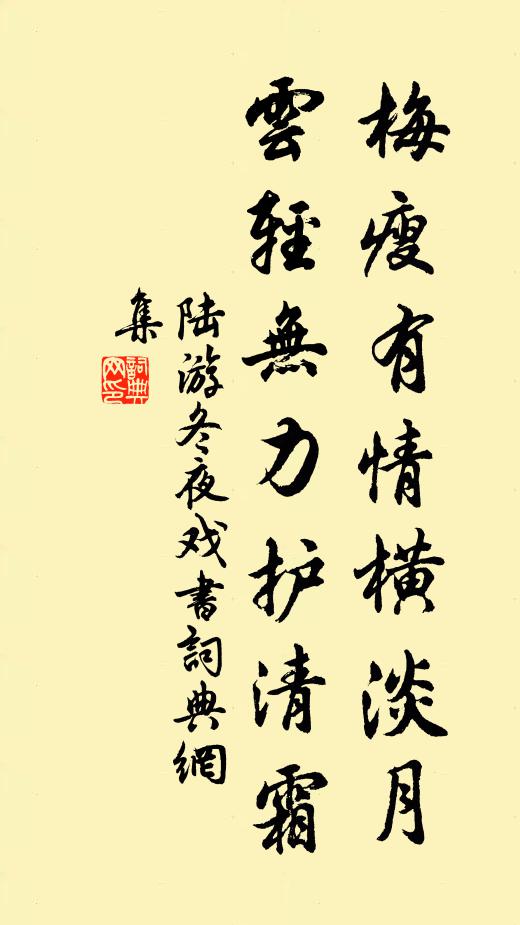 梅瘦有情橫淡月
雲輕無力护清霜
陆游冬夜戏書詞典網
集
詞典
网印